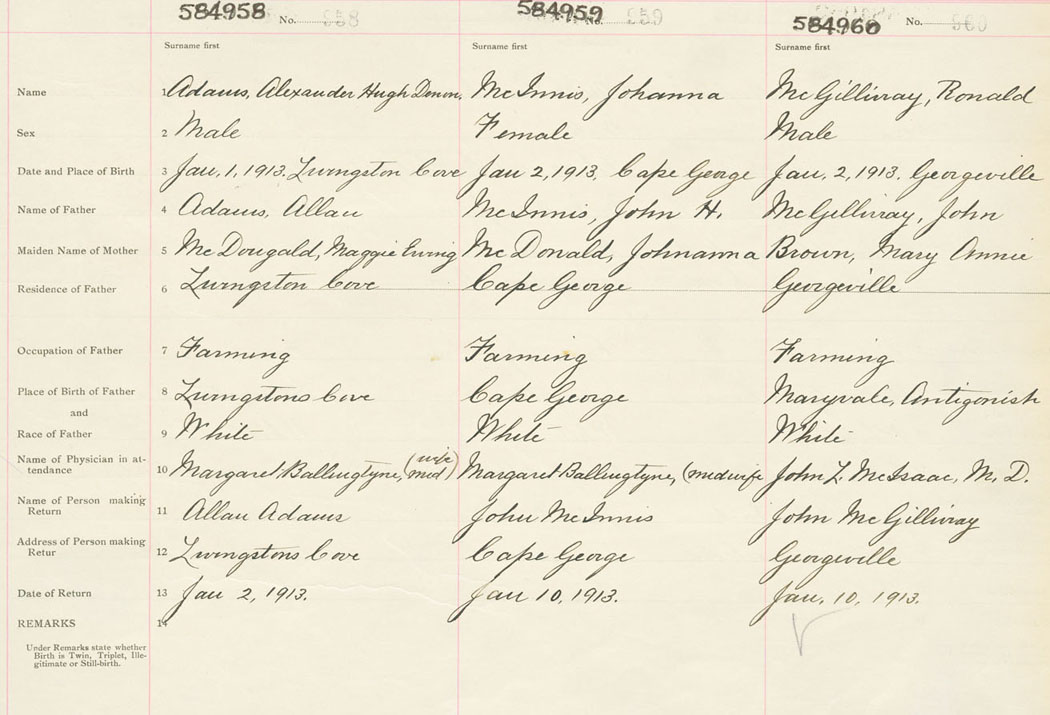 584958 No. 958 584959 No. 959 584960 No. 960
Surname first Surname first Surname first
Name 1 Adams, Alexander Hugh McInnis, Johanna McGillivray, Ronald
Sex 2 Male Female Male
Date and Place of Birth 3 Jan. 1, 1913. Livingston Cove Jan 2, 1913. Cape George Jan. 2, 1913. Georgeville
Name of Father 4 Adams, Allan McInnis, John H. McGillivray, John
Maiden Name of Mother 5 McDougald, Maggie Ewing McDonald, Johnanna Brown, Mary Annie
Residence of Father 6 Livingston Cove Cape George Georgeville
Occupation of Father 7 Farming Farming Farming
Place of Birth of Father 8 Livingstons Cove Cape George Maryvale, Antigonish
and
Race of Father 9 White White White
Name of Physician in at-
tendance 10 Margaret Ballingtyne, (mid wife) Margaret Ballingtyne, (midwife John L. McIsaac, M. D.
Name of Person making
Return 11 Allan Adams John McInnis John McGillivray
Address of Person making
Retur 12 Livingstons Cove Cape George Georgeville
Date of Return 13 Jan 2, 1913. Jan 10, 1913. Jan. 10, 1913.
REMARKS 14
Under Remarks state whether
Birth is Twin, Triplet, Ille-
gitimate or Still-birth.